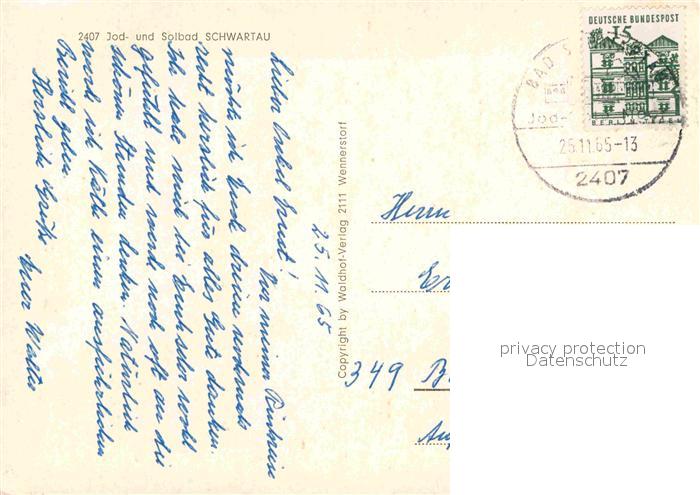 2407 Jod- und Solbad SCHWARTAU
25.11.65
Lieber Onkel Ernst!
Vor meiner Rückreise
möchte ich Euch dreien nochmals
recht herzlich für alles Gute danken.
Ich habe mich bei Euch sehr wohl
gefühlt und werde noch oft an die
schönen Stunden denken. Natürlich
werde ich Käthe einen ausführlichen
Bericht geben.
Herzliche Grüße
Euer Walter
Copyright by Waldhof-Verlag 2111 Wennerstorf
DEUTSCHE BUNDESPOST
15
BERLIN
BAD
Jod-
25.11.65-13
2407
Herrn
349 B
privacy protection
Datenschutz